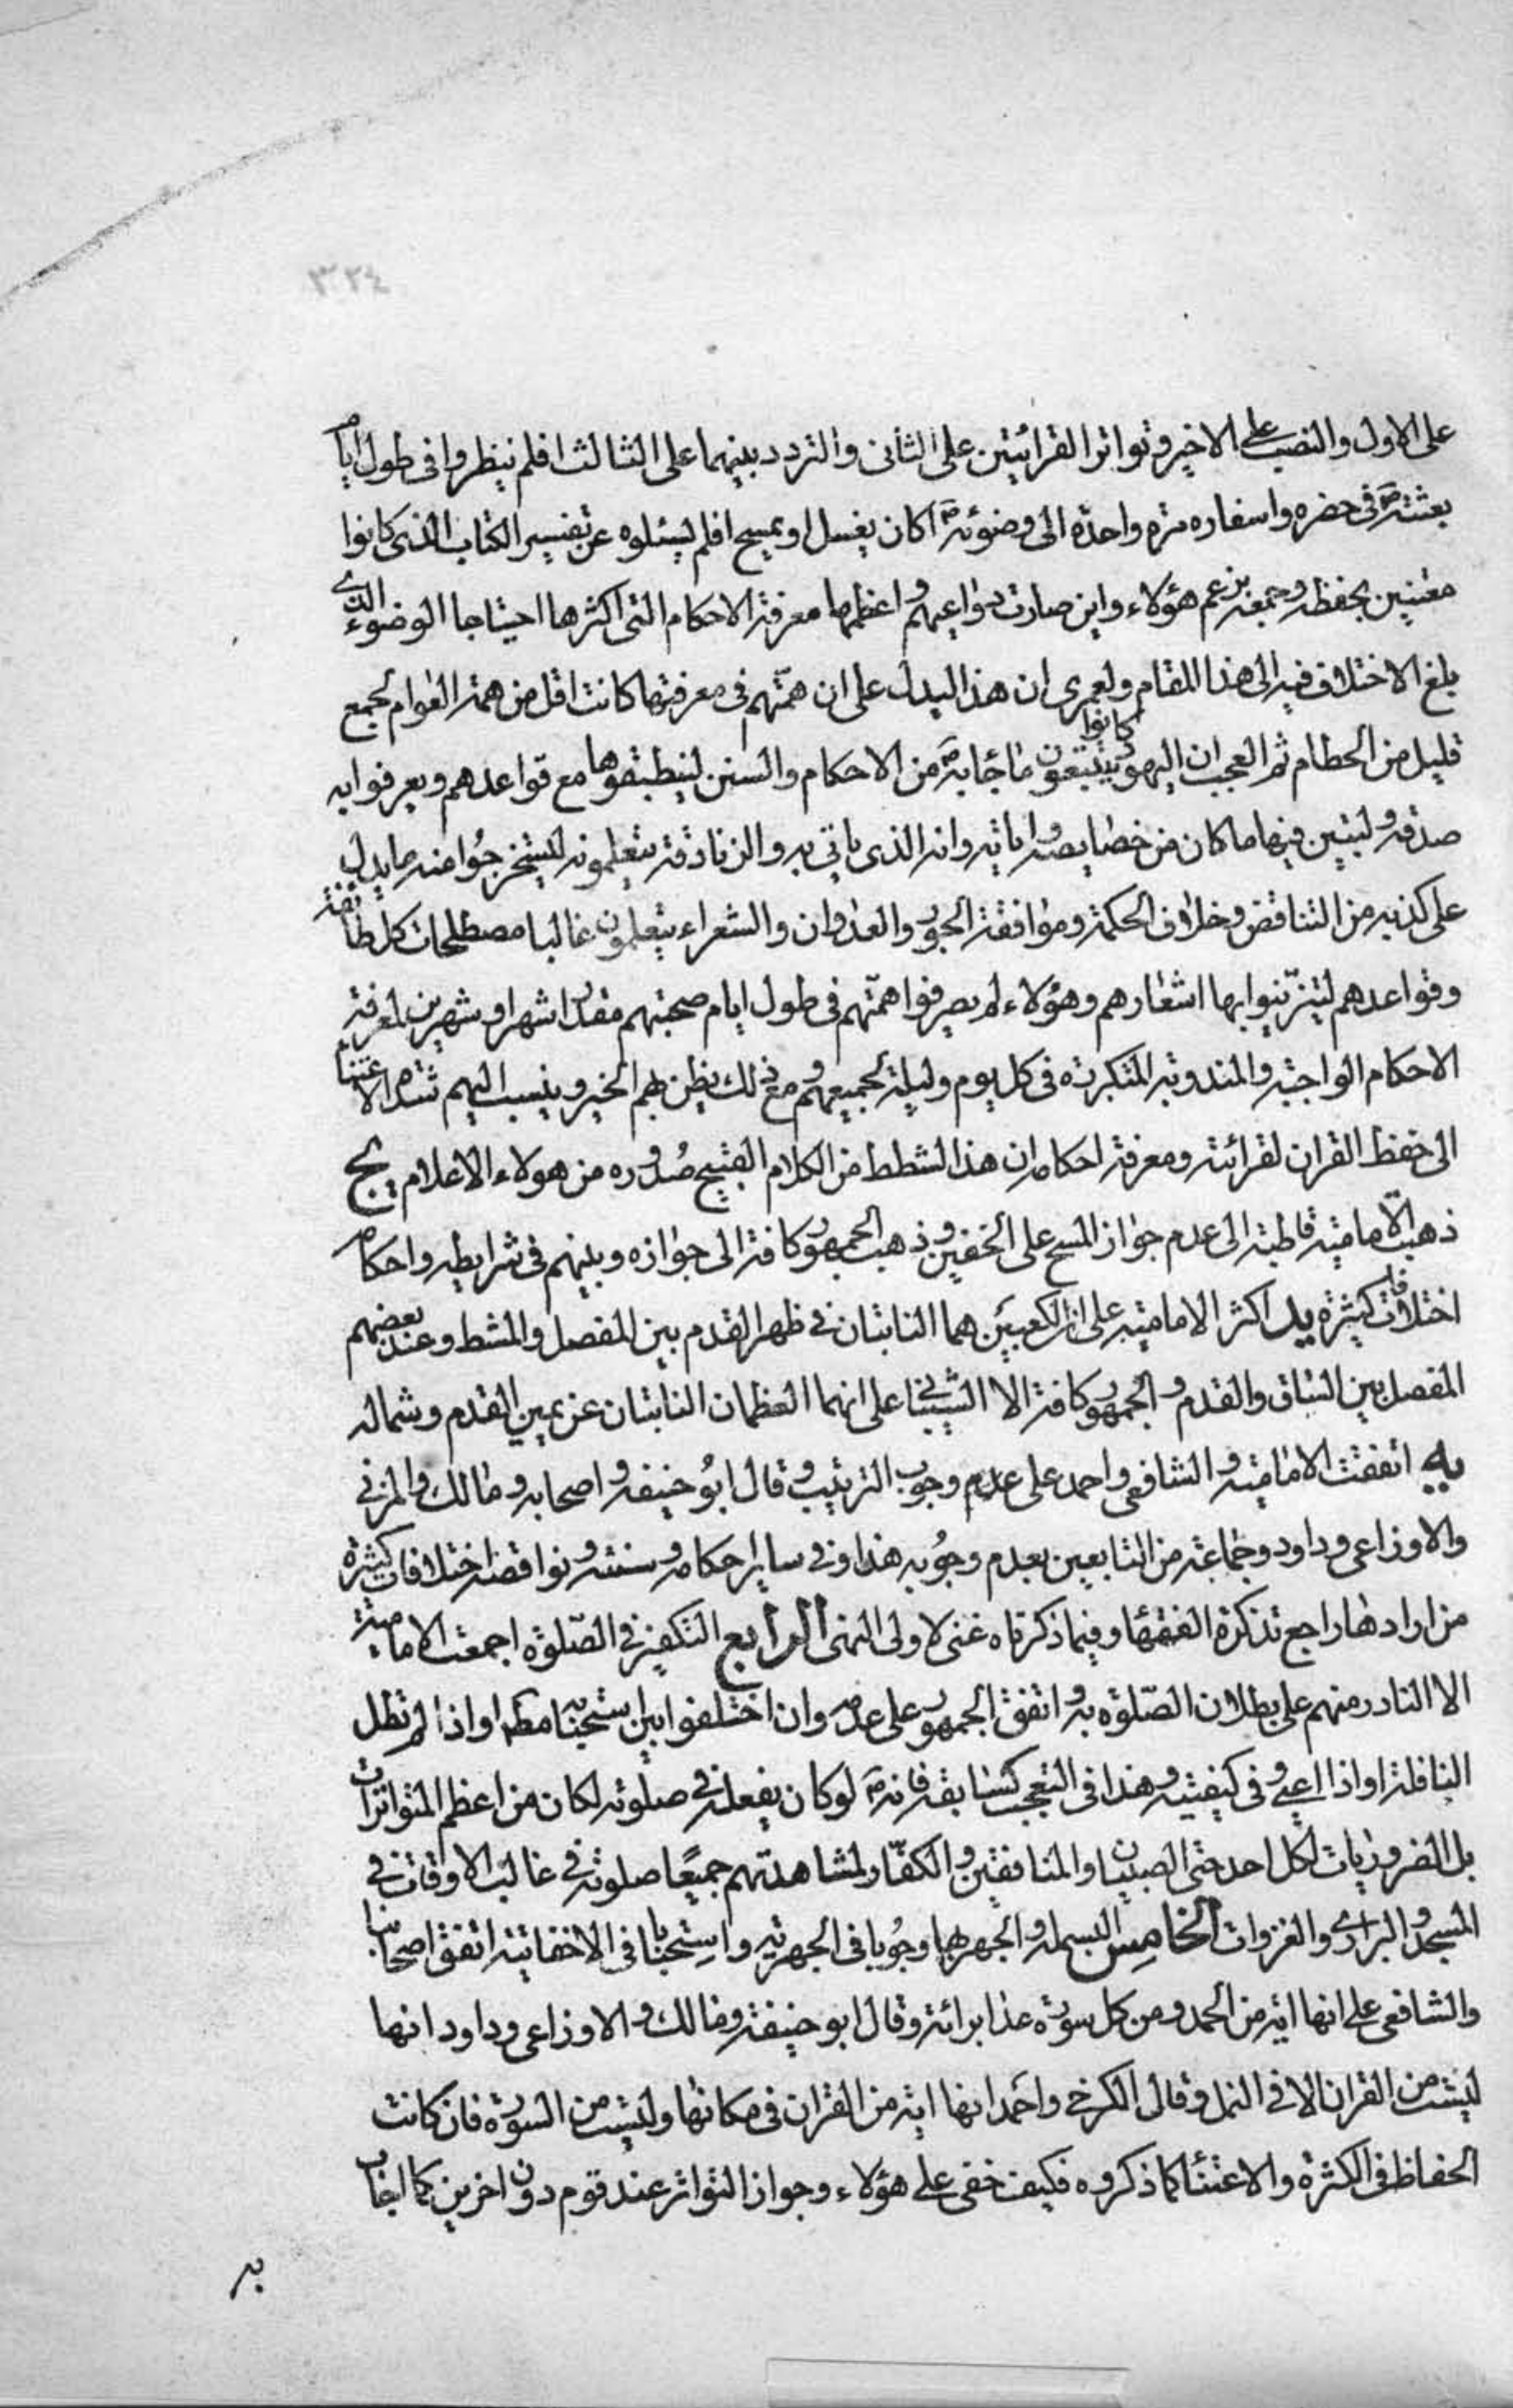 ٣٢٤
على الاول والنصب على الاخير وتواتر القرائتين على الثانى والتردد بينهما على الثالث افلم ينظروا فى طول ايام
بعثته ص فى حضره واسفاره مرة واحدة الى وضوئه ص اكان يغسل او يمسح افلم يسئلوه عن تفسير الكتاب الذى كانوا
معتنين بحفظه وجمعه بزعم هؤلاء واين صارت دواعيهم واعظمها معرفة الاحكام التى اكثرها احتياجا الوضوء الذى
بلغ الاختلاف فيه الى هذا المقام ولعمرى ان هذا ليدل على ان همّتهم فى معرفتها كانت اقل من همة العوام لجمع
قليل من الحطام ثم العجب ان اليهود كانوا يتتبعون ما جاء به ص من الاحكام والسنن لينطبقوها مع قواعدهم ويعرفوا به
صدقه وليتبين فيها ما كان من خصايصه واياته وانه الذى ياتى به والزنادقة يتعلمونه ليستخرجوا منه ما يدل
على كذبه من التناقض وخلاف الحكمة وموافقة الجور والعدوان والشعراء يتعلمون غالبا مصطلحات كل طائفة
وقواعدهم ليتزيّنوا بها اشعارهم وهؤلاء لم يصرفوا همّتهم فى طول ايام صحبتهم مقدار اشهر او شهرين لمعرفة
الاحكام الواجبة والمندوبة المتكررة فى كل يوم وليلة لجميعهم ومع ذلك يظن بهم الخير وينسب اليهم شدة الاعتناء
الى حفظ القران لقرائته ومعرفة احكامه ان هذا لشطط من الكلام القبيح صدوره من هولاء الاعلام يج
ذهب الامامية قاطبة الى عدم جواز المسح على الخفين وذهب الجمهور كافة الى جوازه وبينهم فى شرايطه واحكامه
اختلافات كثيرة يد اكثر الامامية على ان الكعبين هما النابتان فى ظهر القدم بين المفصل والمشط وعند بعضهم
المفصل بين الساق والقدم والجمهور كافة الا الشيبانى على انهما العظمان النابتان عن يمين القدم وشماله
يه اتفقت الامامية والشافعى واحمد على عدم وجوب الترتيب وقال ابو حنيفه واصحابه ومالك والمزنى
والاوزاعى وداود وجماعة من التابعين بعدم وجوبه هذا وفى ساير احكامه وسننه ونواقضه اختلافات كثيرة
من ارادها راجع تذكرة الفقهاء وفيما ذكرناه غنى لاولى النهى الرابع التكفير فى الصّلوة اجمعت الامامية
الا النادر منهم على بطلان الصّلوة به واتفق الجمهور على عدمه وان اختلفوا بين استحبابه مطلقا او اذا لم تطل
النافلة او اذا اعيى وفى كيفيته وهذا فى التعجب كسابقه فانه ص لو كان يفعله فى صلوته لكان من اعظم المتواترات
بل الضروريات لكل احد حتى الصبيان والمنافقين والكفّار لمشاهدتهم جميعًا صلوته فى غالب الاوقات فى
المسجد والبرارى والغزوات الخامس البسملة والجهر بها وجوبا فى الجهرية واستحبابا فى الاخفاتية اتفق اصحابنا
والشافعى على انها اية من الحمد ومن كل سورة عدا برائة وقال ابو حنيفة ومالك والاوزاعى وداود انها
ليست من القران الا فى النمل وقال الكرخى واحمد انها اية من القران فى مكانها وليست من السورة فان كانت
الحفاظ فى الكثرة والاعتناء كما ذكروه فكيف خفى على هؤلاء وجواز التواتر عند قوم دون اخرين كما اجاب
به